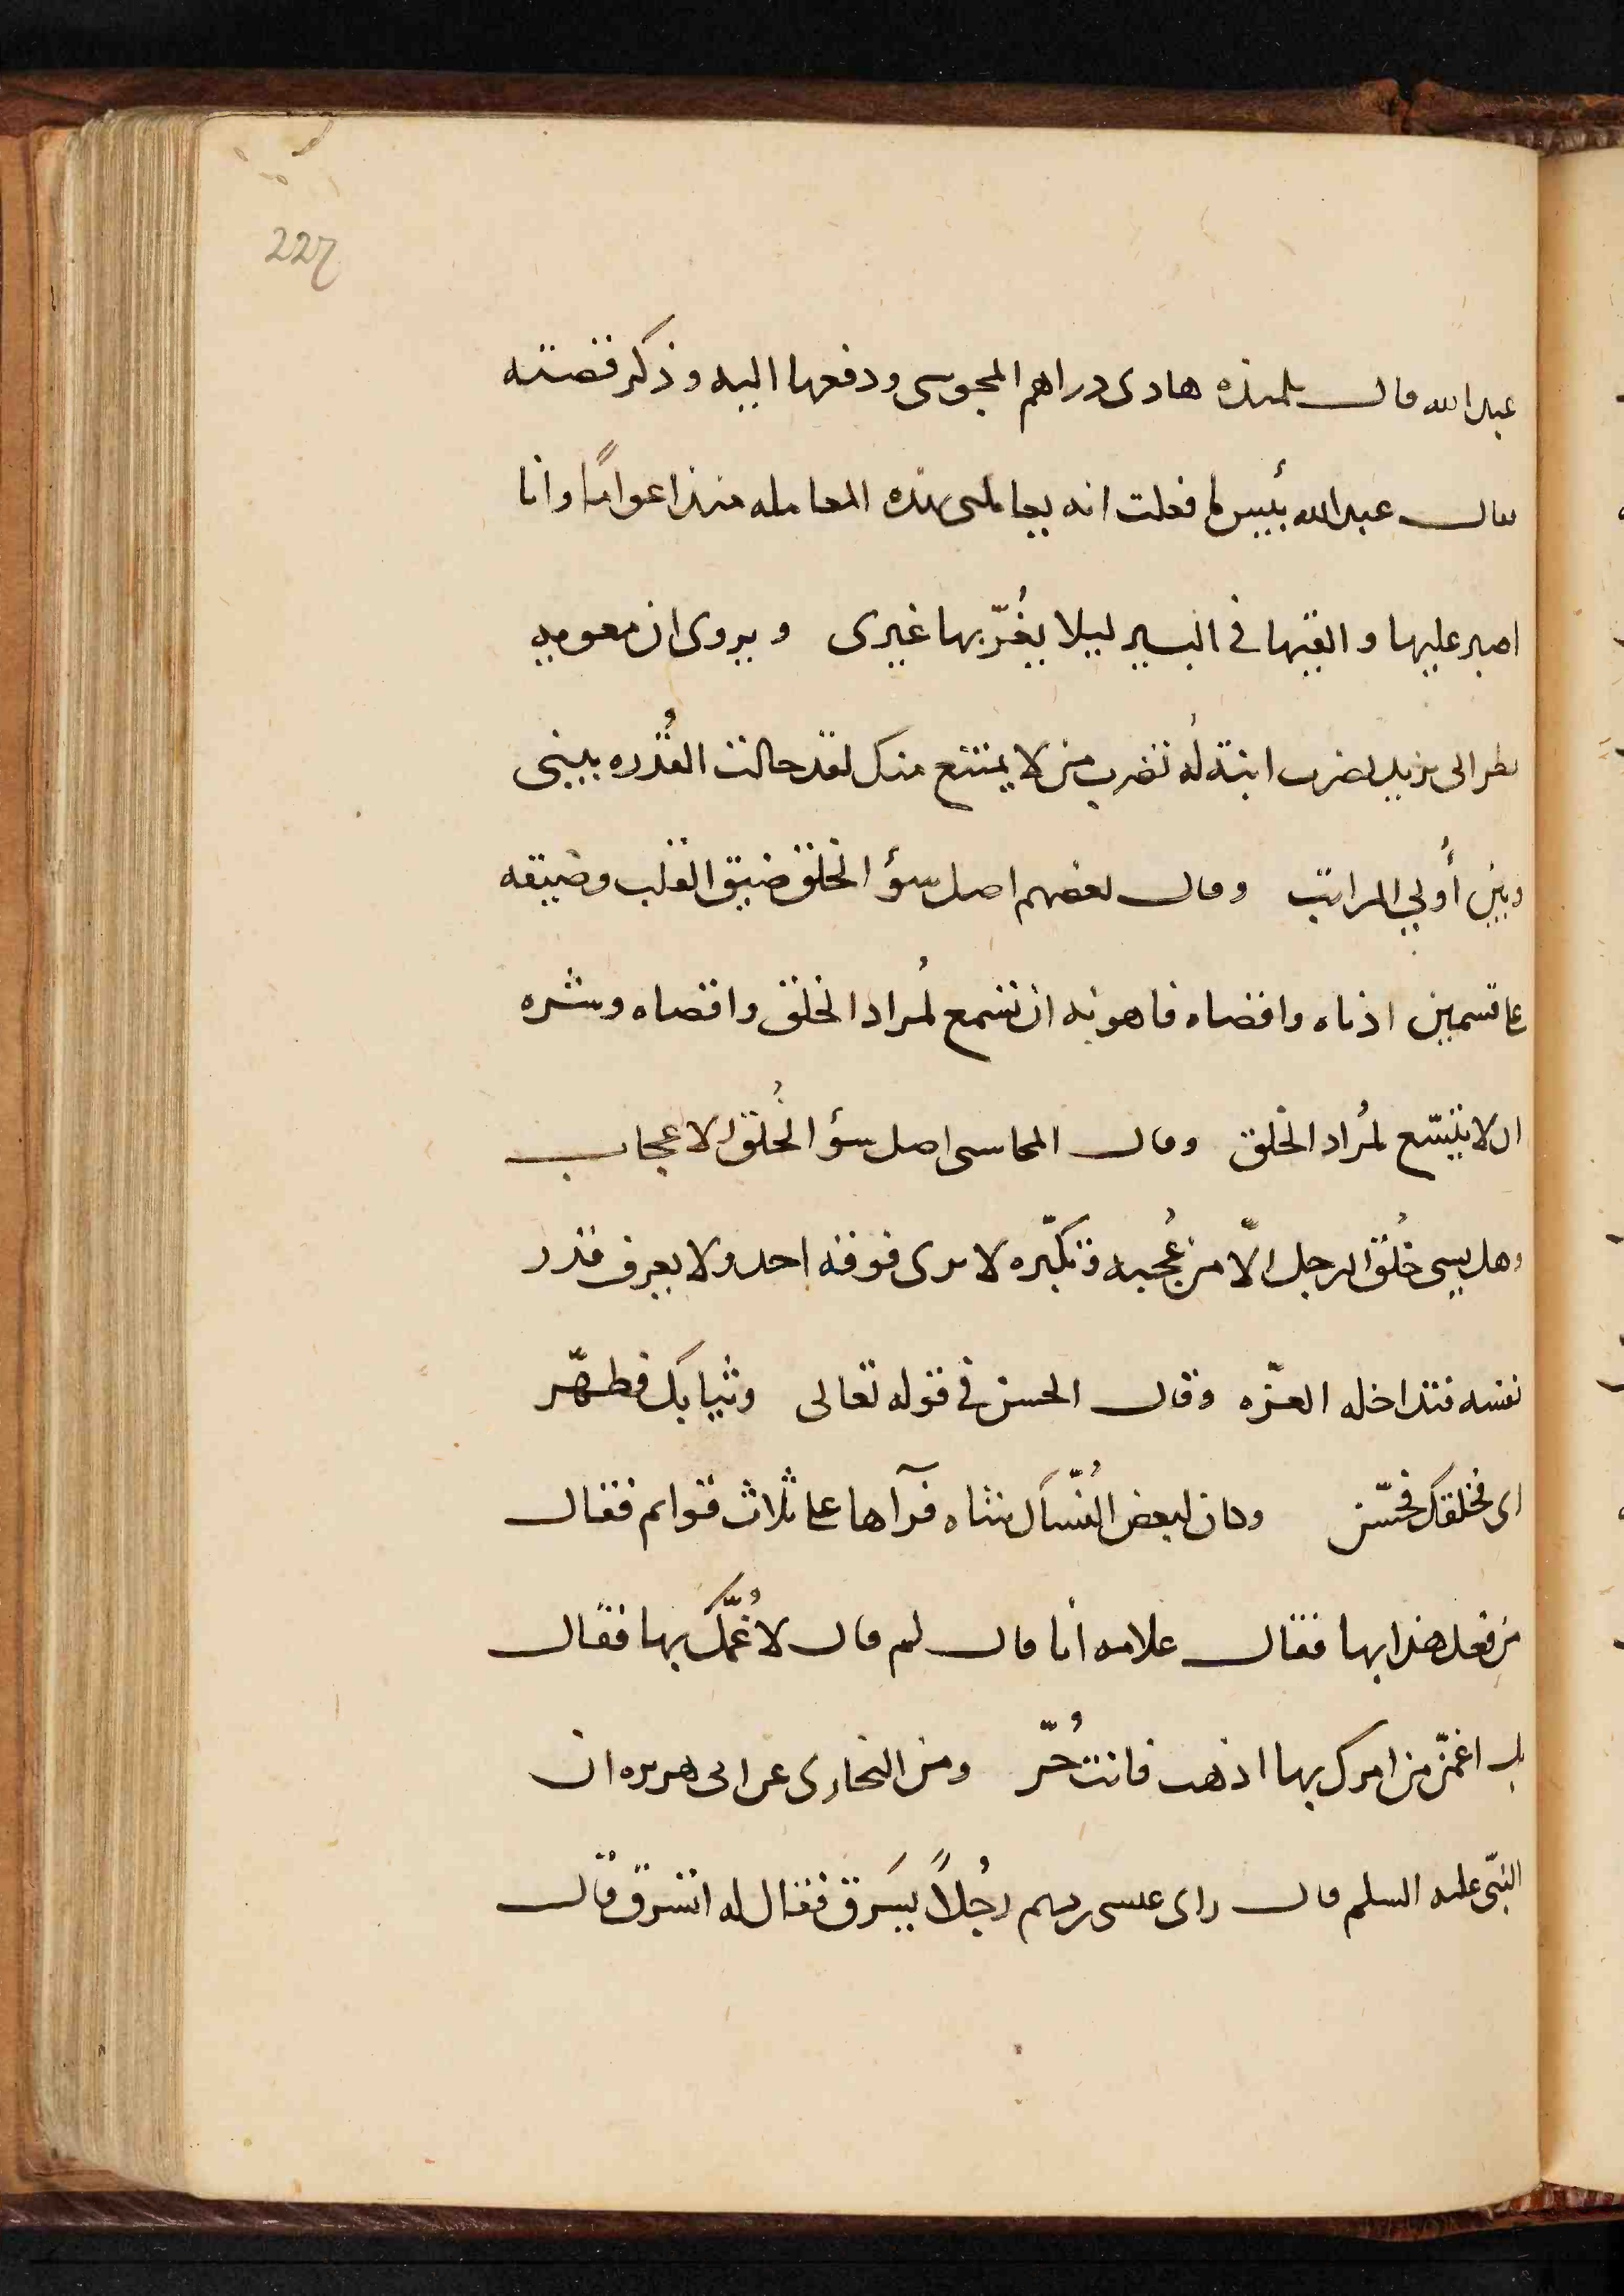 227
عبد الله قال تلميذه هادى دراهم المجوسى ودفعها اليه وذكر قصته
فقال عبد الله بئيس لما فعلت انه يعاملنى بهذه المعامله منذ اعوامًا وانا
اصبر عليها والقيها فى البير ليلا يغُرّ بها غيرى ويروى ان معويه
نظر الى يزيد يضرب ابنة لهُ تضرب من لا يمتنع منك لقد حالت القُدره بينى
وبين أُولي المراتب وقال بعضهم اصل سؤ الخلق ضيق القلب وضيقه
على قسمين ادناه واقصاه فاهونه ان تسمع لمُراد الخلق واقصاه وشره
ان لا يتسّع لمُراد الخلق وقال المحاسبى اصل سؤ الخُلق الاعجاب
وهل يسى خُلق الرجل الّا من عُجبه وتكبّره لا يرى فوقه احد ولا يعرف قدر
نفسه فتداخله العزّه وقال الحسن فى قوله تعالى وثيابك فطهّر
اى فخلقك فحسّن وكان لبعض النُسّاك شاه فرآها على ثلاث قوايم فقال
من فعل هذا بها فقال غلامه أنا قال لم قال لاغُمّك بها فقال
بل اغمّن من امرك بها اذهب فانت حُرّ ومن البخارى عن ابى هريره ان
النبّى عليه السلم قال راى عيسى بن مريم رجُلاً يسَرق فقال له اتسرق قال